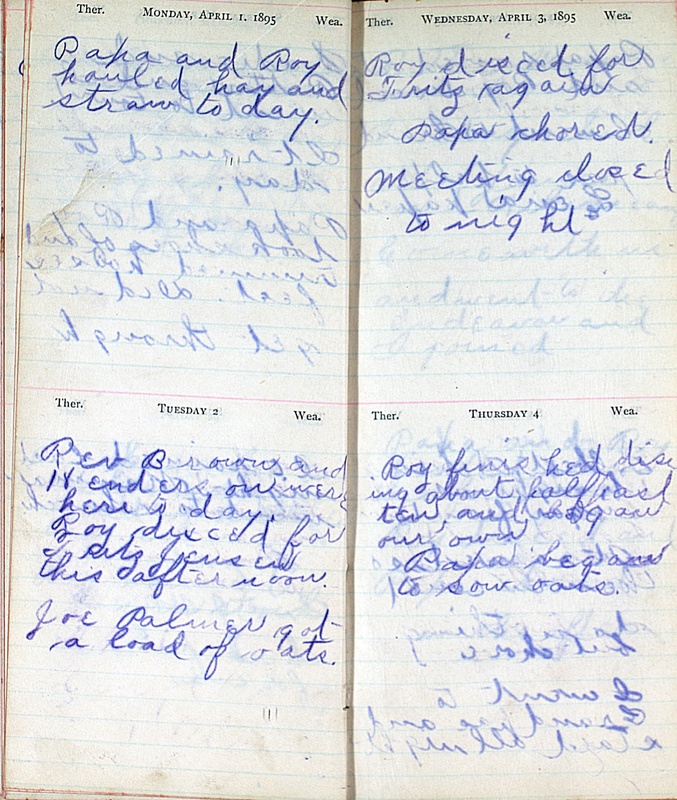 Ther. MONDAY, APRIL 1. 1895 Wea.
Papa and Roy
hauled hay and
straw to day.
Ther. TUESDAY 2 Wea.
Rev Browns and
were
here to day.
Roy disced for
Fritz Jensen
this afternoon.
Joe Palmer got
a load of oats.
Ther. WEDNESDAY, APRIL 3, 1895 Wea.
Roy disced for
Fritz again
Papa chored.
Meeting closed
to night
Ther. THURSDAY 4 Wea.
Roy finished disc
ing about half past
ten, and began
our own
Papa began
to sow oats.